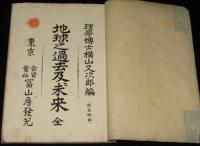 理學博士橫山又次郎編
地球之過去及未來 全
東京
合資
會社
冨山房發兌